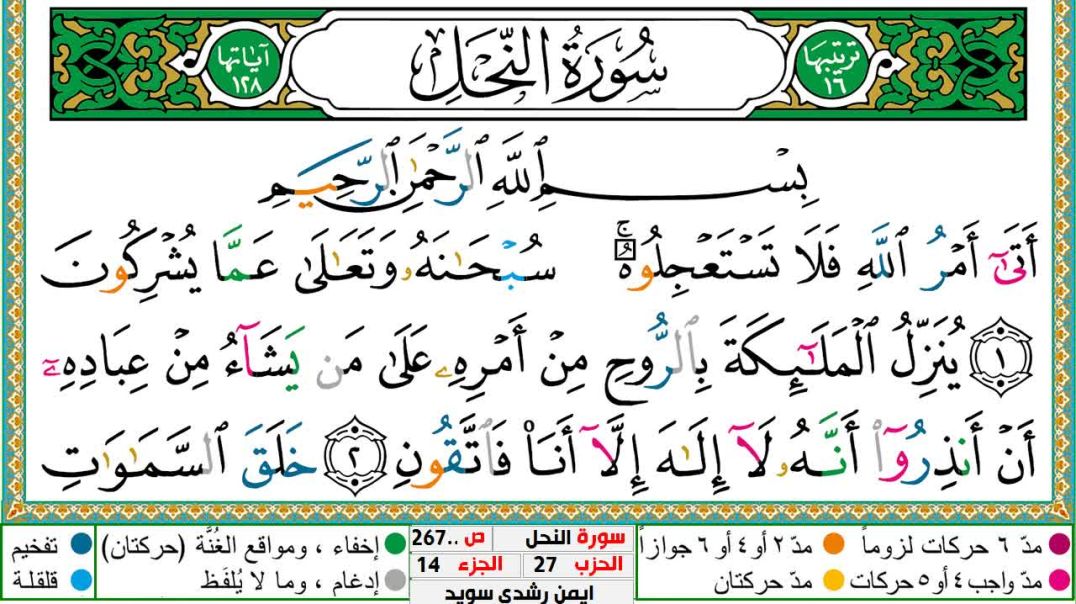 ترتيبها ١٦ سُورَةُ النَّحْلِ آياتها ١٢٨
بِسْمِ ٱللَّهِ ٱلرَّحْمَٰنِ ٱلرَّحِيمِ
أَتَىٰٓ أَمْرُ ٱللَّهِ فَلَا تَسْتَعْجِلُوهُۚ سُبْحَٰنَهُۥ وَتَعَٰلَىٰ عَمَّا يُشْرِكُونَ
١ يُنَزِّلُ ٱلْمَلَٰٓئِكَةَ بِٱلرُّوحِ مِنْ أَمْرِهِۦ عَلَىٰ مَن يَشَآءُ مِنْ عِبَادِهِۦٓ
أَنْ أَنذِرُوٓا۟ أَنَّهُۥ لَآ إِلَٰهَ إِلَّآ أَنَا۠ فَٱتَّقُونِ ٢ خَلَقَ ٱلسَّمَٰوَٰتِ
مدّ ٦ حركات لزوماً مدّ ٢ أو ٤ أو ٦ جوازاً
مدّ واجب ٤ أو ٥ حركات مدّ حركتان
سورة النحل ص ..267
الحزب 27 الجزء 14
ايمن رشدي سويد
إخفاء ، ومواقع الغُنَّة (حركتان) تفخيم
إدغام ، وما لا يُلفَظ قلقلة